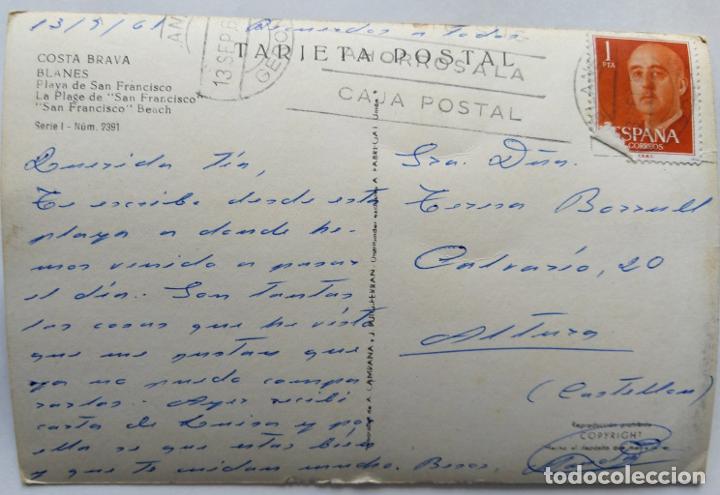 13/9/61 Recuerdos a todos
TARJETA POSTAL
13 SEP 6
AHORROS A LA
CAJA POSTAL
1
PTA
ESPAÑA
CORREOS
COSTA BRAVA
BLANES
Playa de San Francisco
La Plage de "San Francisco"
"San Francisco" Beach
Serie I - Núm. 2391
Querida tía,
Te escribo desde esta
playa a donde he-
mos venido a pasar
el día. Son tantas
las cosas que he visto
que me gustan que
ya no puedo compa-
rarlas. Ayer recibí
carta de Luisa y por
ella se que estás bién
y que te cuidan mucho. Besos,
Sra. Dña.
Teresa Borrull
Calvario, 20
Altura
(Castellón)
Reproducción prohibida
COPYRIGHT
Hecho el depósito que
todocoleccion